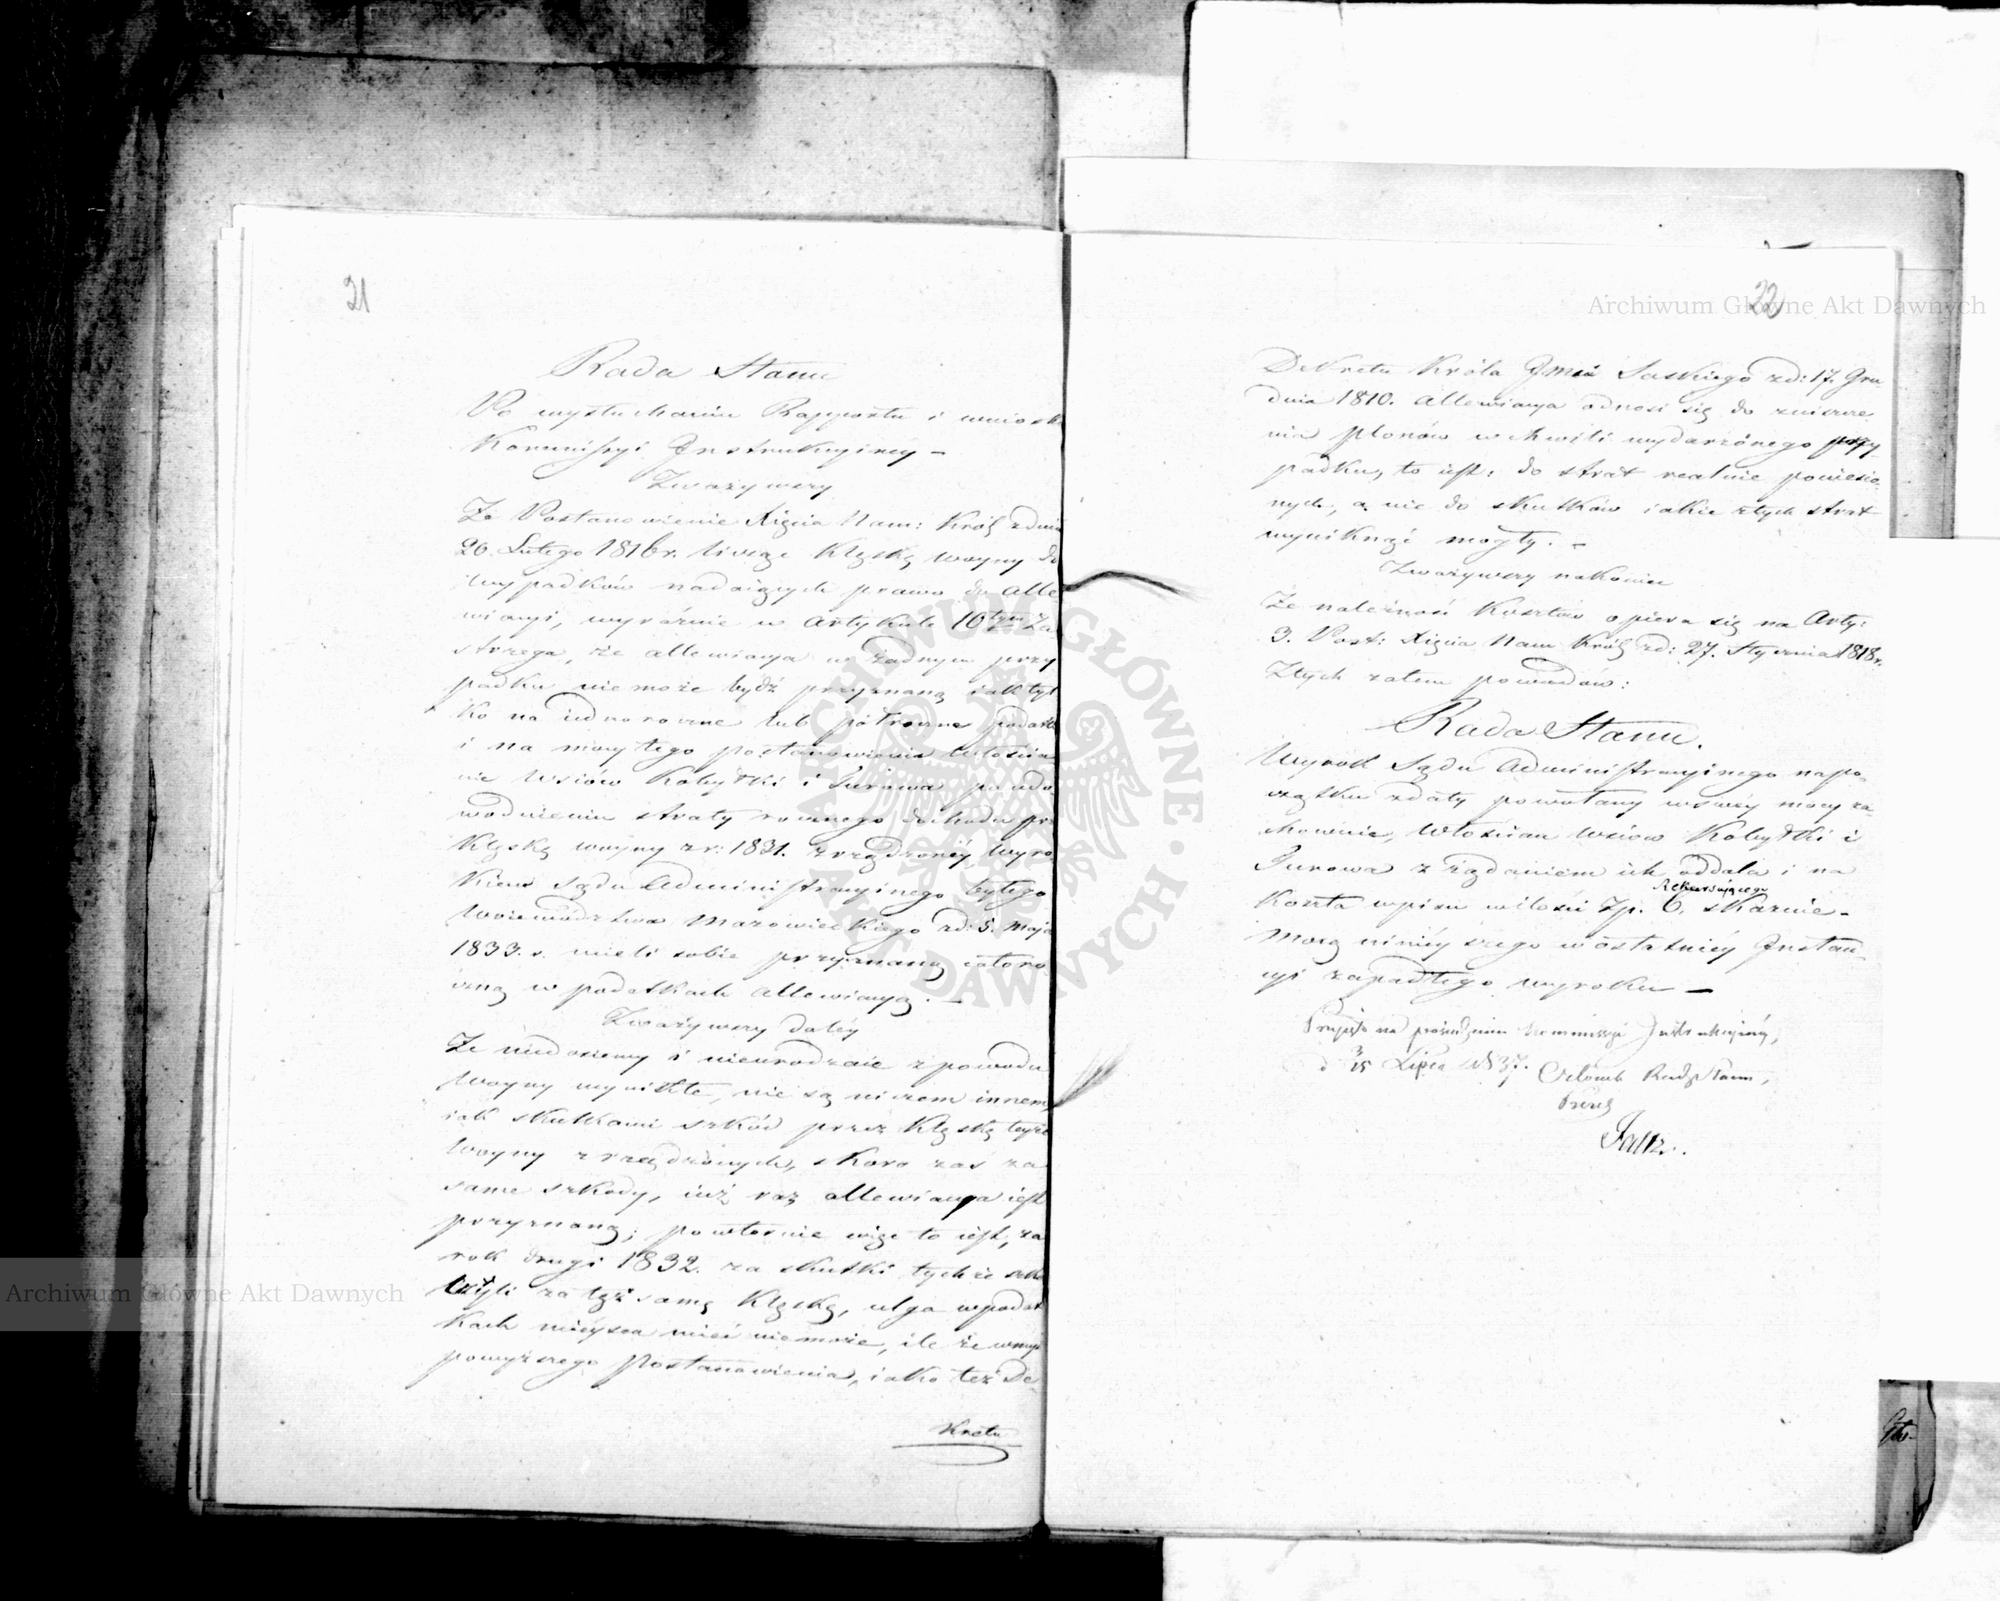 21
Rada Stanu
Po wysłuchaniu Rapportu i wniosk
Kommissyi Instrukcyinéy –
Zważywszy
Że Postanowienie Xięcia Nam: Król z dnia
20. Lutego 1816 r. licząc klęskę woyny do
wypadków nadaiących prawo do alle
wiacyi, wyraźnie w Artykule 10tym za
strzega, że allewiacya w żadnym przy
padku nie może bydź przyznaną iak tyl
ko na iednoroczne lub półroczne podatki
i na mocy tego postanowienia Włościa
nie Wsiów Kobyłki i Turowa po udo
wodnieniu straty rocznego dochodu prz
klęskę woyny z r: 1831. zrządzonéy, Wyro
kiem Sądu Administracyinego byłego
Woiewództwa Mazowieckiego z d: 5. Maja
1833. r. mieli sobie przyznaną całoro
czną w podatkach allewiacyą. –
Zważywszy daléy
Że niedosiewy i nieurodzaie z powodu
Woyny wynikłe, nie są niczem innem,
iak skutkami szkód przez klęskę teyże
Woyny zrządzonych, skoro zaś za
same szkody, iuż raz allewiacya iest
przyznaną; powtórnie więc to iest, za
rok drugi 1832. za skutki tychże szkó
czyli za tęż samę klęskę, ulga w podat
kach mieysca mieć nie może, ile że w myśl
powyższego Postanowienia, iako też De
kretu
22
Dekretu Króla Jmci Saskiego z d: 17. Gru
dnia 1810. allewiacya odnosi się do zniszcze
nia plonów w chwili wydarzonego przy
padku, to iest: do strat realnie poniesio
nych, a nie do skutków iakie z tych strat
wyniknąć mogły. –
Zważywszy nakoniec
Że należność kosztów opiera się na Arty:
3. Post: Xięcia Nam Król z d: 27. Stycznia 1818 r.
Z tych zatem powodów:
Rada Stanu.
Wyrok Sądu Administracyinego na po-
czątku z daty powołany w swéy mocy za-
chowuie, Włościan Wsiów Kobyłki i
Turowa z żądaniem ich oddala i na
Rekursującego
koszta wpisu w ilości Zp. 6. skazuie –
Mocą ninieyszego w ostatniéy Instan
cyi zapadłego wyroku –
Przyjęto na posiedzeniu Kommissyi Instrukcyinéy,
d 3/15 Lipca 1837. Członek Rady Stanu,
Prezes